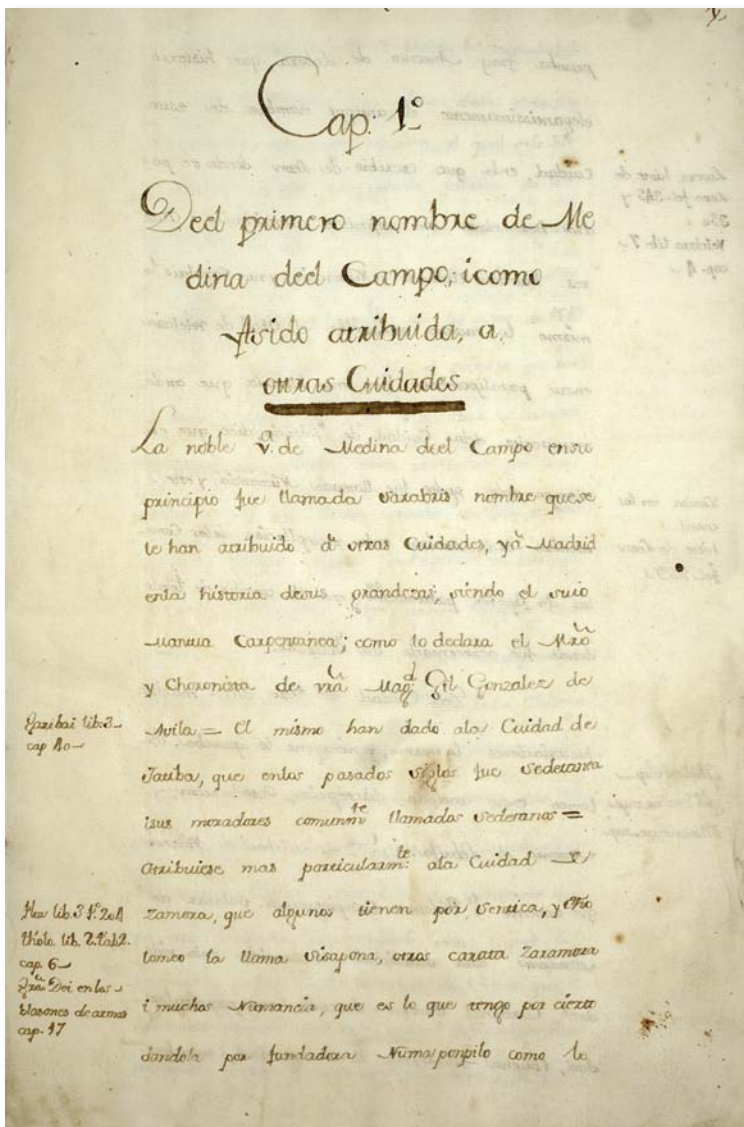 Cap. 1º
Deel primero nombre de Me
dina deel Campo; icomo
Asido atribuida, a,
otras Cuidades
La noble vª. de Medina deel Campo ensu
principio fue llamada Sarabris nombre quese
le han atribuido â otras Cuidades, yâ Madrid
enla historia desus grandezas, siendo el suio
Mantua Carpentanea; como lo declara el Mrô
y Choronista de vrâ Magd. Gil Gonzalez de
Avila = El mismo han dado ala Cuidad de
Jatiba, que enlos pasados siglos fue Sedetanea
isus moradores comunmte llamados Sedetanos =
Atribuiese mas particularmte. ala Cuidad de
Zamora, que algunos tienen por Sentica, y Pto
lomeo la llama Sisapona, otros Zaramora
i muchos Numancia, que es lo que tengo por cierto
dandola por fundadora Numa ponpilo como lo
Garibai lib. 3
cap 10
lib. 3
lib. 2. tab. 2.
cap. 6
Dei enlos
blasones de armas
cap. 17